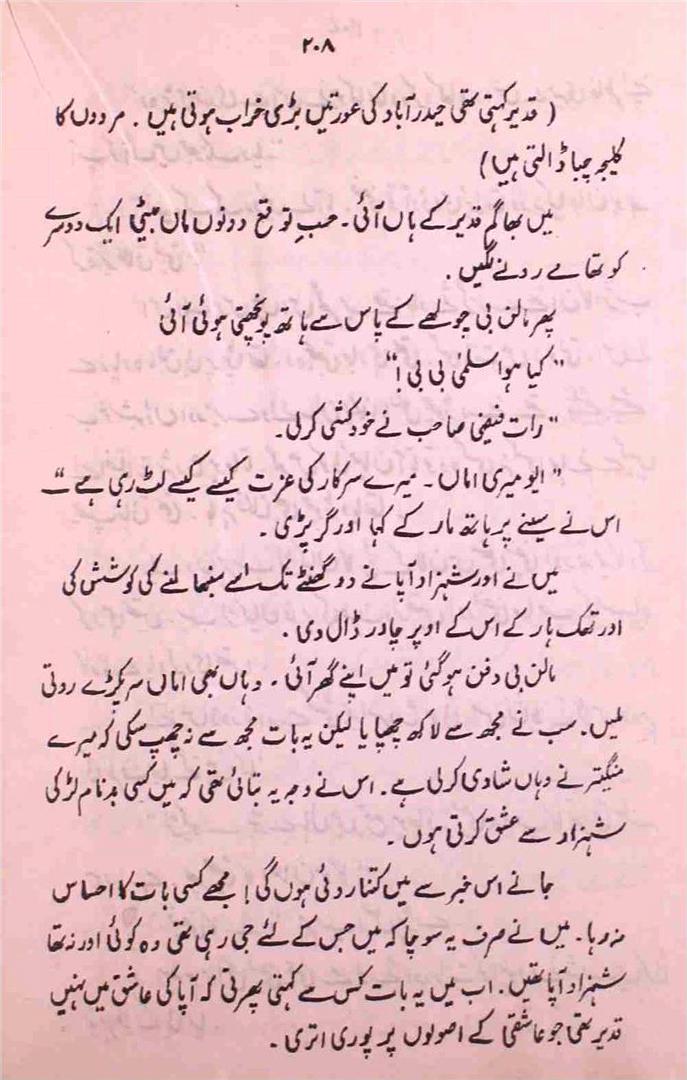 ۲۰۸
( قدیر کہتی تھی حیدرآباد کی عورتیں بڑی خراب ہوتی ہیں ۔ مردوں کا
کلیجہ چبا ڈالتی ہیں )
میں بھاگم قدیر کے ہاں آئی ۔ حسبِ توقع دونوں ماں بیٹی ایک دوسرے
کو تھامے رونے لگیں ۔
پھر مالن بی چولھے کے پاس سے ہاتھ پونچھتی ہوئی آئی
" کیا ہوا سلمیٰ بی بی ! "
" رات فیضی صاحب نے خودکشی کرلی ۔
" ایو میری اماں ۔ میرے سرکار کی عزت کیسے کیسے لٹ رہی ہے " ــ
اس نے سینے پر ہاتھ مار کے کہا اور گر پڑی ۔
میں نے اور شہزاد آپا نے دو گھنٹے تک اسے سنبھالنے کی کوشش کی
اور تھک ہار کے اس کے اوپر چادر ڈال دی ۔
مالن بی دفن ہوگئی تو میں اپنے گھر آئی ۔ وہاں بھی اماں سر پکڑے روتی
ملیں ۔ سب نے مجھ سے لاکھ چھپایا لیکن یہ بات مجھ سے نہ چھپ سکی کہ میرے
منگیتر نے وہاں شادی کرلی ہے ۔ اس نے وجہ یہ بتائی تھی کہ میں کسی بدنام لڑکی
شہزاد سے عشق کرتی ہوں ۔
جانے اس خبر سے میں کتنا روئی ہوں گی ! مجھے کسی بات کا احساس
نہ رہا ۔ میں نے صرف یہ سوچا کہ میں جس کے لئے جی رہی تھی وہ کوئی اور نہ تھا
شہزاد آپا تھیں ۔ اب میں یہ بات کس سے کہتی پھرتی کہ آپا کی عاشق میں نہیں
قدیر تھی جو عاشقی کے اصولوں پر پوری اتری ۔